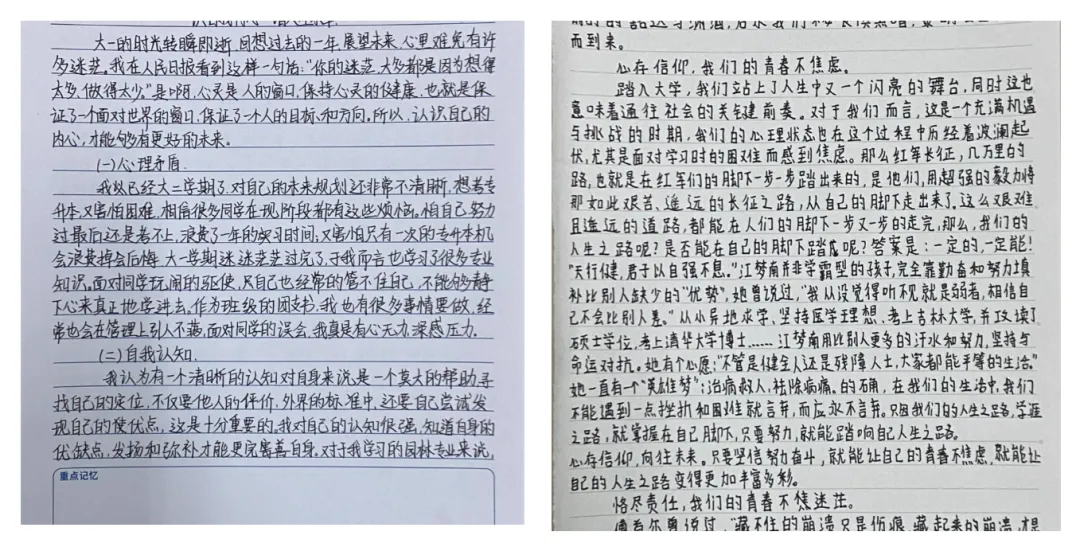 大一的时光转瞬即逝,回想过去的一年,展望未来,心里难免有许
多迷茫。我在人民日报看到这样一句话:"你的迷茫,大多都是因为想得
太多,做得太少。"是啊,心灵是人的窗口,保持心灵的健康,也就是保
证了一个面对世界的窗口,保证了一个人的目标和方向。所以,认识自己的
内心,才能够有更好的未来。
(一)心理矛盾
我以已经大二学期了,对自己的未来规划还非常不清晰,想考专
升本,又害怕困难,相信很多同学在现阶段都有这些烦恼。怕自己努力
过最后还是考不上,浪费了一年的实习时间;又害怕只有一次的专升本机
会浪费掉会后悔。大一学期迷迷茫茫过完了,于我而言也学习了很多专业
知识。面对同学玩闹的驱使,只自己也经常的管不住自己,不能够静
下心来真正地学进去,作为班级的团支书,我也有很多事情要做,经
常也会在管理上引人不满,面对同学的误会,我真是有心无力,深感压力。
(二)自我认知
我认为有一个清晰的认知对自身来说,是一个莫大的帮助,寻
找自己的定位,不仅要他人的评价,外界的标准中,还要自己尝试发
现自己的优缺点,这是十分重要的。我对自己的认知很强,知道自身的
优缺点,发扬和弥补才能更完善自身。对于我学习的园林专业来说,
重点记忆
而到来。
心存信仰,我们的青春不焦虑。
踏入大学,我们站上了人生中又一个闪亮的舞台,同时这也
意味着通往社会的关键前奏。对于我们而言,这是一个充满机遇
与挑战的时期,我们的心理状态也在这个过程中历经着波澜起
伏,尤其是面对学习时的困难而感到焦虑。那么红军长征,几万里的
路,也就是在红军们的脚下一步一步踏出来的,是他们,用超强的毅力将
那如此艰苦、遥远的长征之路,从自己的脚下走出来了。这么艰难
且遥远的道路,都能在人们的脚下一步又一步的走完,那么,我们的
人生之路呢?是否能在自己的脚下踏成呢?答案是:一定的,一定能!
"天行健,君子以自强不息。"江梦南并非学霸型的孩子,完全靠勤奋和努力填
补比别人缺少的"优势",她曾说过,"我从没觉得听不见就是弱者,相信自
己不会比别人差。"从小异地求学、坚持医学理想、考上吉林大学,并攻读了
硕士学位,考上清华大学博士……江梦南用比别人更多的汗水和努力,坚持与
命运对抗。她有个心愿:"不管是健全人还是残障人士,大家都能平等的生活。"
她一直有一个"英雄梦":治病救人,祛除病痛。的确,在我们的生活中,我们
不能遇到一点挫折和困难就言弃,而应永不言弃。只因我们的人生之路,学涯
之路,就掌握在自己脚下,只要努力,就能踏响自己人生之路。
心存信仰,向往未来。只要坚信努力奋斗,就能让自己的青春不焦虑,就能让
自己的人生之路变得更加丰富多彩。
恪尽责任,我们的青春不焦迷茫。